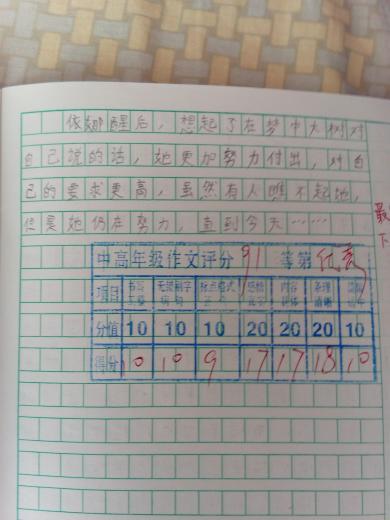 依娜醒后，想起了在梦中大树对
自己说的话，她更加努力付出，对自
己的要求更高，虽然有人瞧不起她，
但是她仍在努力，直到今天……
最
下
中高年级作文评分 91 等第 优秀
项目 书写 无错别字 标点格式 内容 条理
分值 10 10 10 20 20 20 10
得分 10 10 9 17 17 18 10